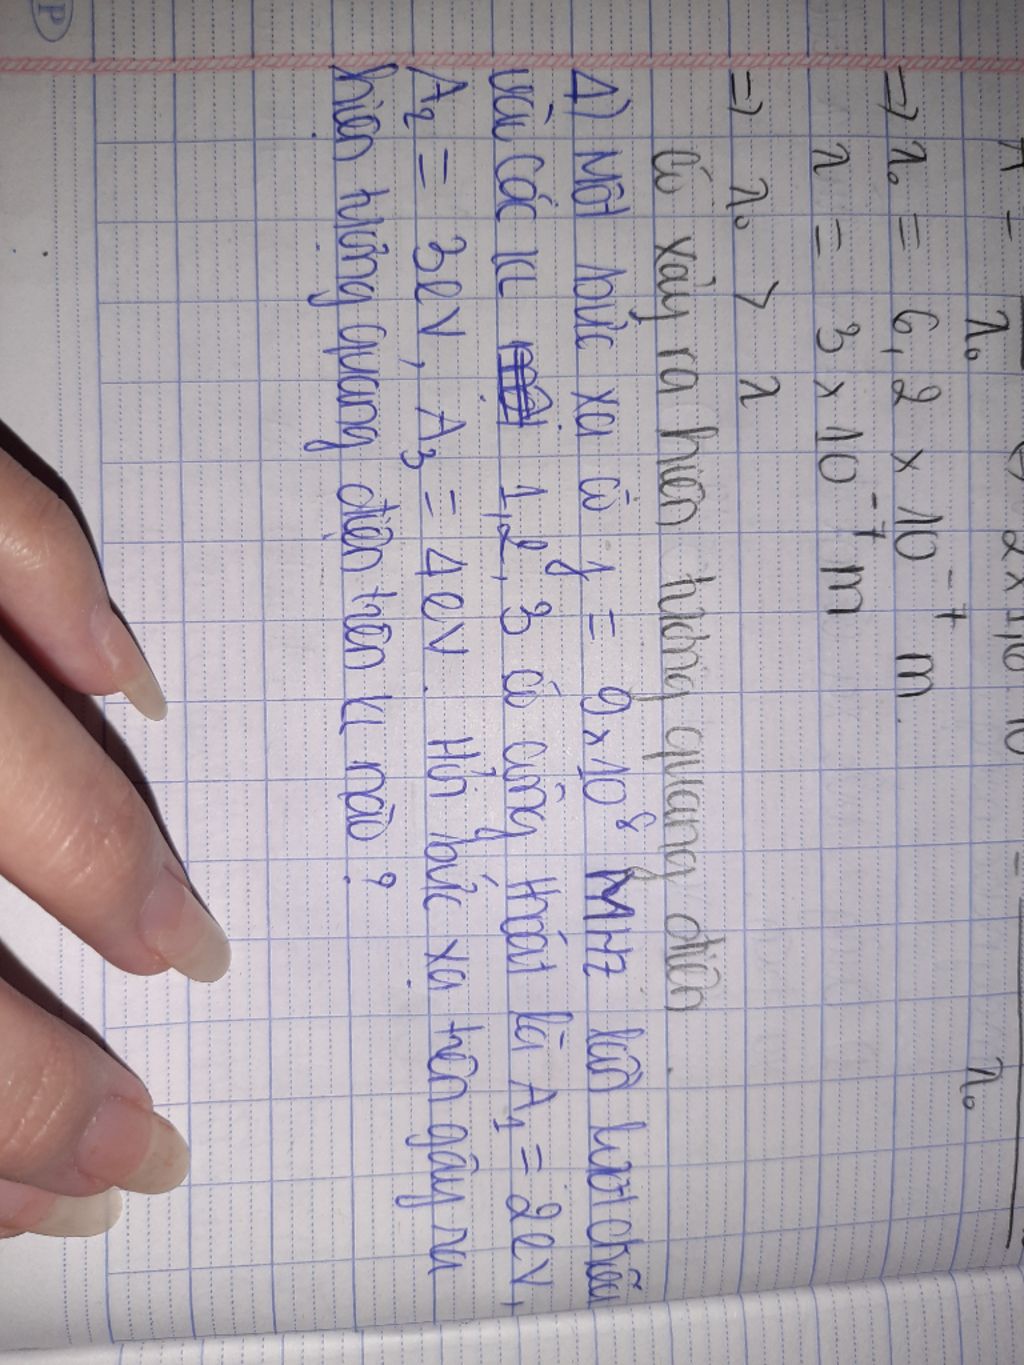 λ₀ ⇔ 2×1,6.10 = λ₀
⇒ λ₀ = 6,2 × 10⁻⁷ m.
λ = 3 × 10⁻⁷ m
⇒ λ₀ > λ
Có xảy ra hiện tượng quang điện.
4) Một bức xạ có f = 9×10⁸ MHz lần lượt chiếu
vào các KL 1, 2, 3 có công thoát là A₁ = 2eV,
A₂ = 3eV, A₃ = 4eV. Hỏi bức xạ trên gây ra
hiện tượng quang điện trên KL nào?